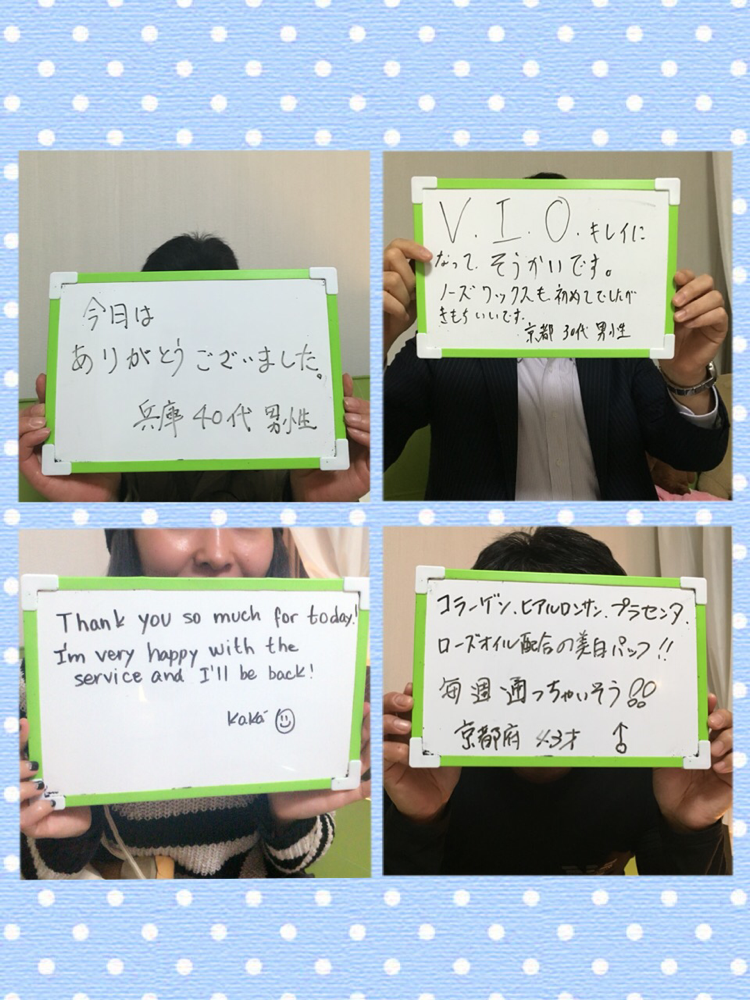 今日は
ありがとうございました。
兵庫 40代 男性
V.I.O.キレイに
なって、そうかいです。
ノーズワックスも初めてでしたが
きもちいいです。
京都 30代 男性
Thank you so much for today!
I'm very happy with the
service and I'll be back!
Kaká
コラーゲン、ヒアルロンサン、プラセンタ、
ローズオイル配合の美白パック!!
毎週通っちゃいそう!!
京都府 43才 ♂